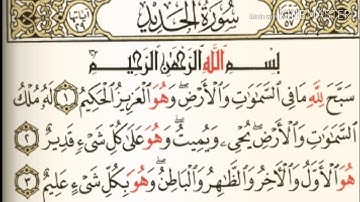 سُورَةُ الحَدِيدِ
آيَاتُهَا ٢٩
بِسْمِ ٱللَّهِ ٱلرَّحْمَٰنِ ٱلرَّحِيمِ
سَبَّحَ لِلَّهِ مَا فِي ٱلسَّمَٰوَٰتِ وَٱلْأَرْضِۖ وَهُوَ ٱلْعَزِيزُ ٱلْحَكِيمُ ١ لَهُۥ مُلْكُ
ٱلسَّمَٰوَٰتِ وَٱلْأَرْضِۖ يُحْيِۦ وَيُمِيتُۖ وَهُوَ عَلَىٰ كُلِّ شَيْءٍ قَدِيرٌ ٢
هُوَ ٱلْأَوَّلُ وَٱلْآخِرُ وَٱلظَّٰهِرُ وَٱلْبَاطِنُۖ وَهُوَ بِكُلِّ شَيْءٍ عَلِيمٌ ٣